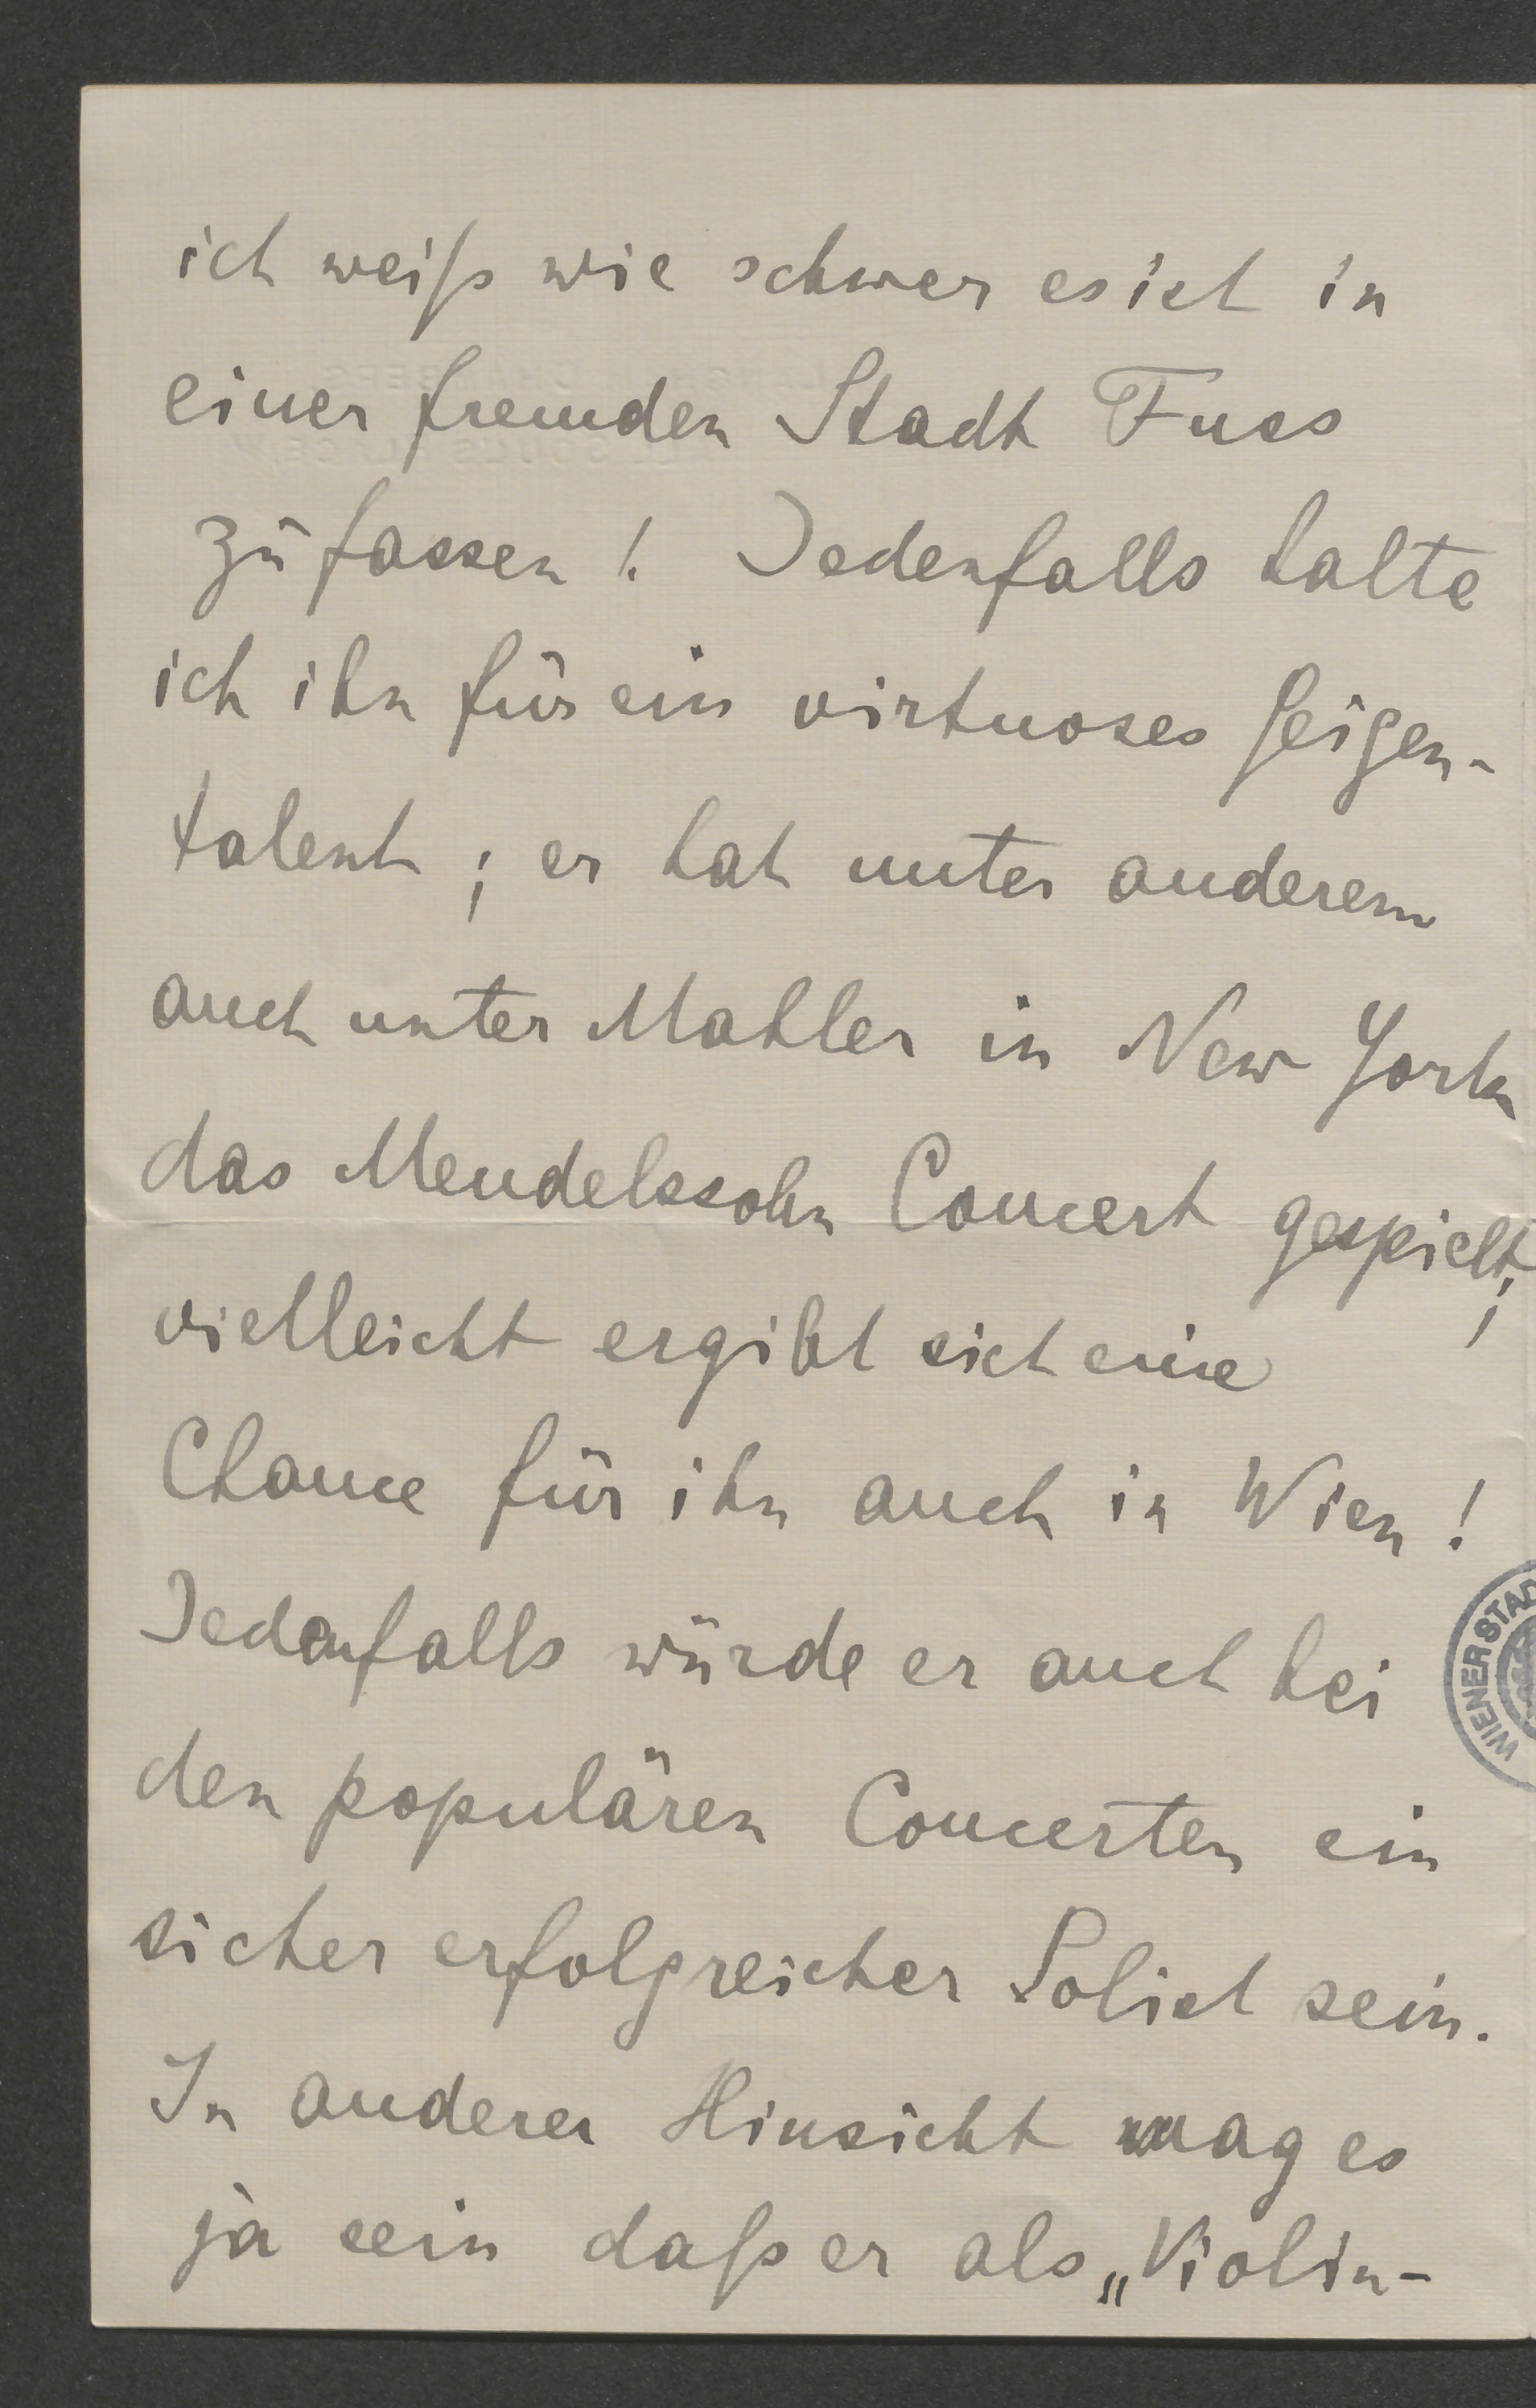 ich weiß wie schwer es ist in
einer fremden Stadt Fuss
zu fassen! Jedenfalls halte
ich ihn für ein virtuoses Geigen-
talent; er hat unter anderem
auch unter Mahler in New York
das Mendelssohn Concert gespielt;
vielleicht ergibt sich eine
Chance für ihn auch in Wien!
Jedenfalls würde er auch bei
den populären Concerten ein
sicher erfolgreicher Solist sein.
In anderer Hinsicht mag es
ja sein daß er als „Violin-
WIENER STAD